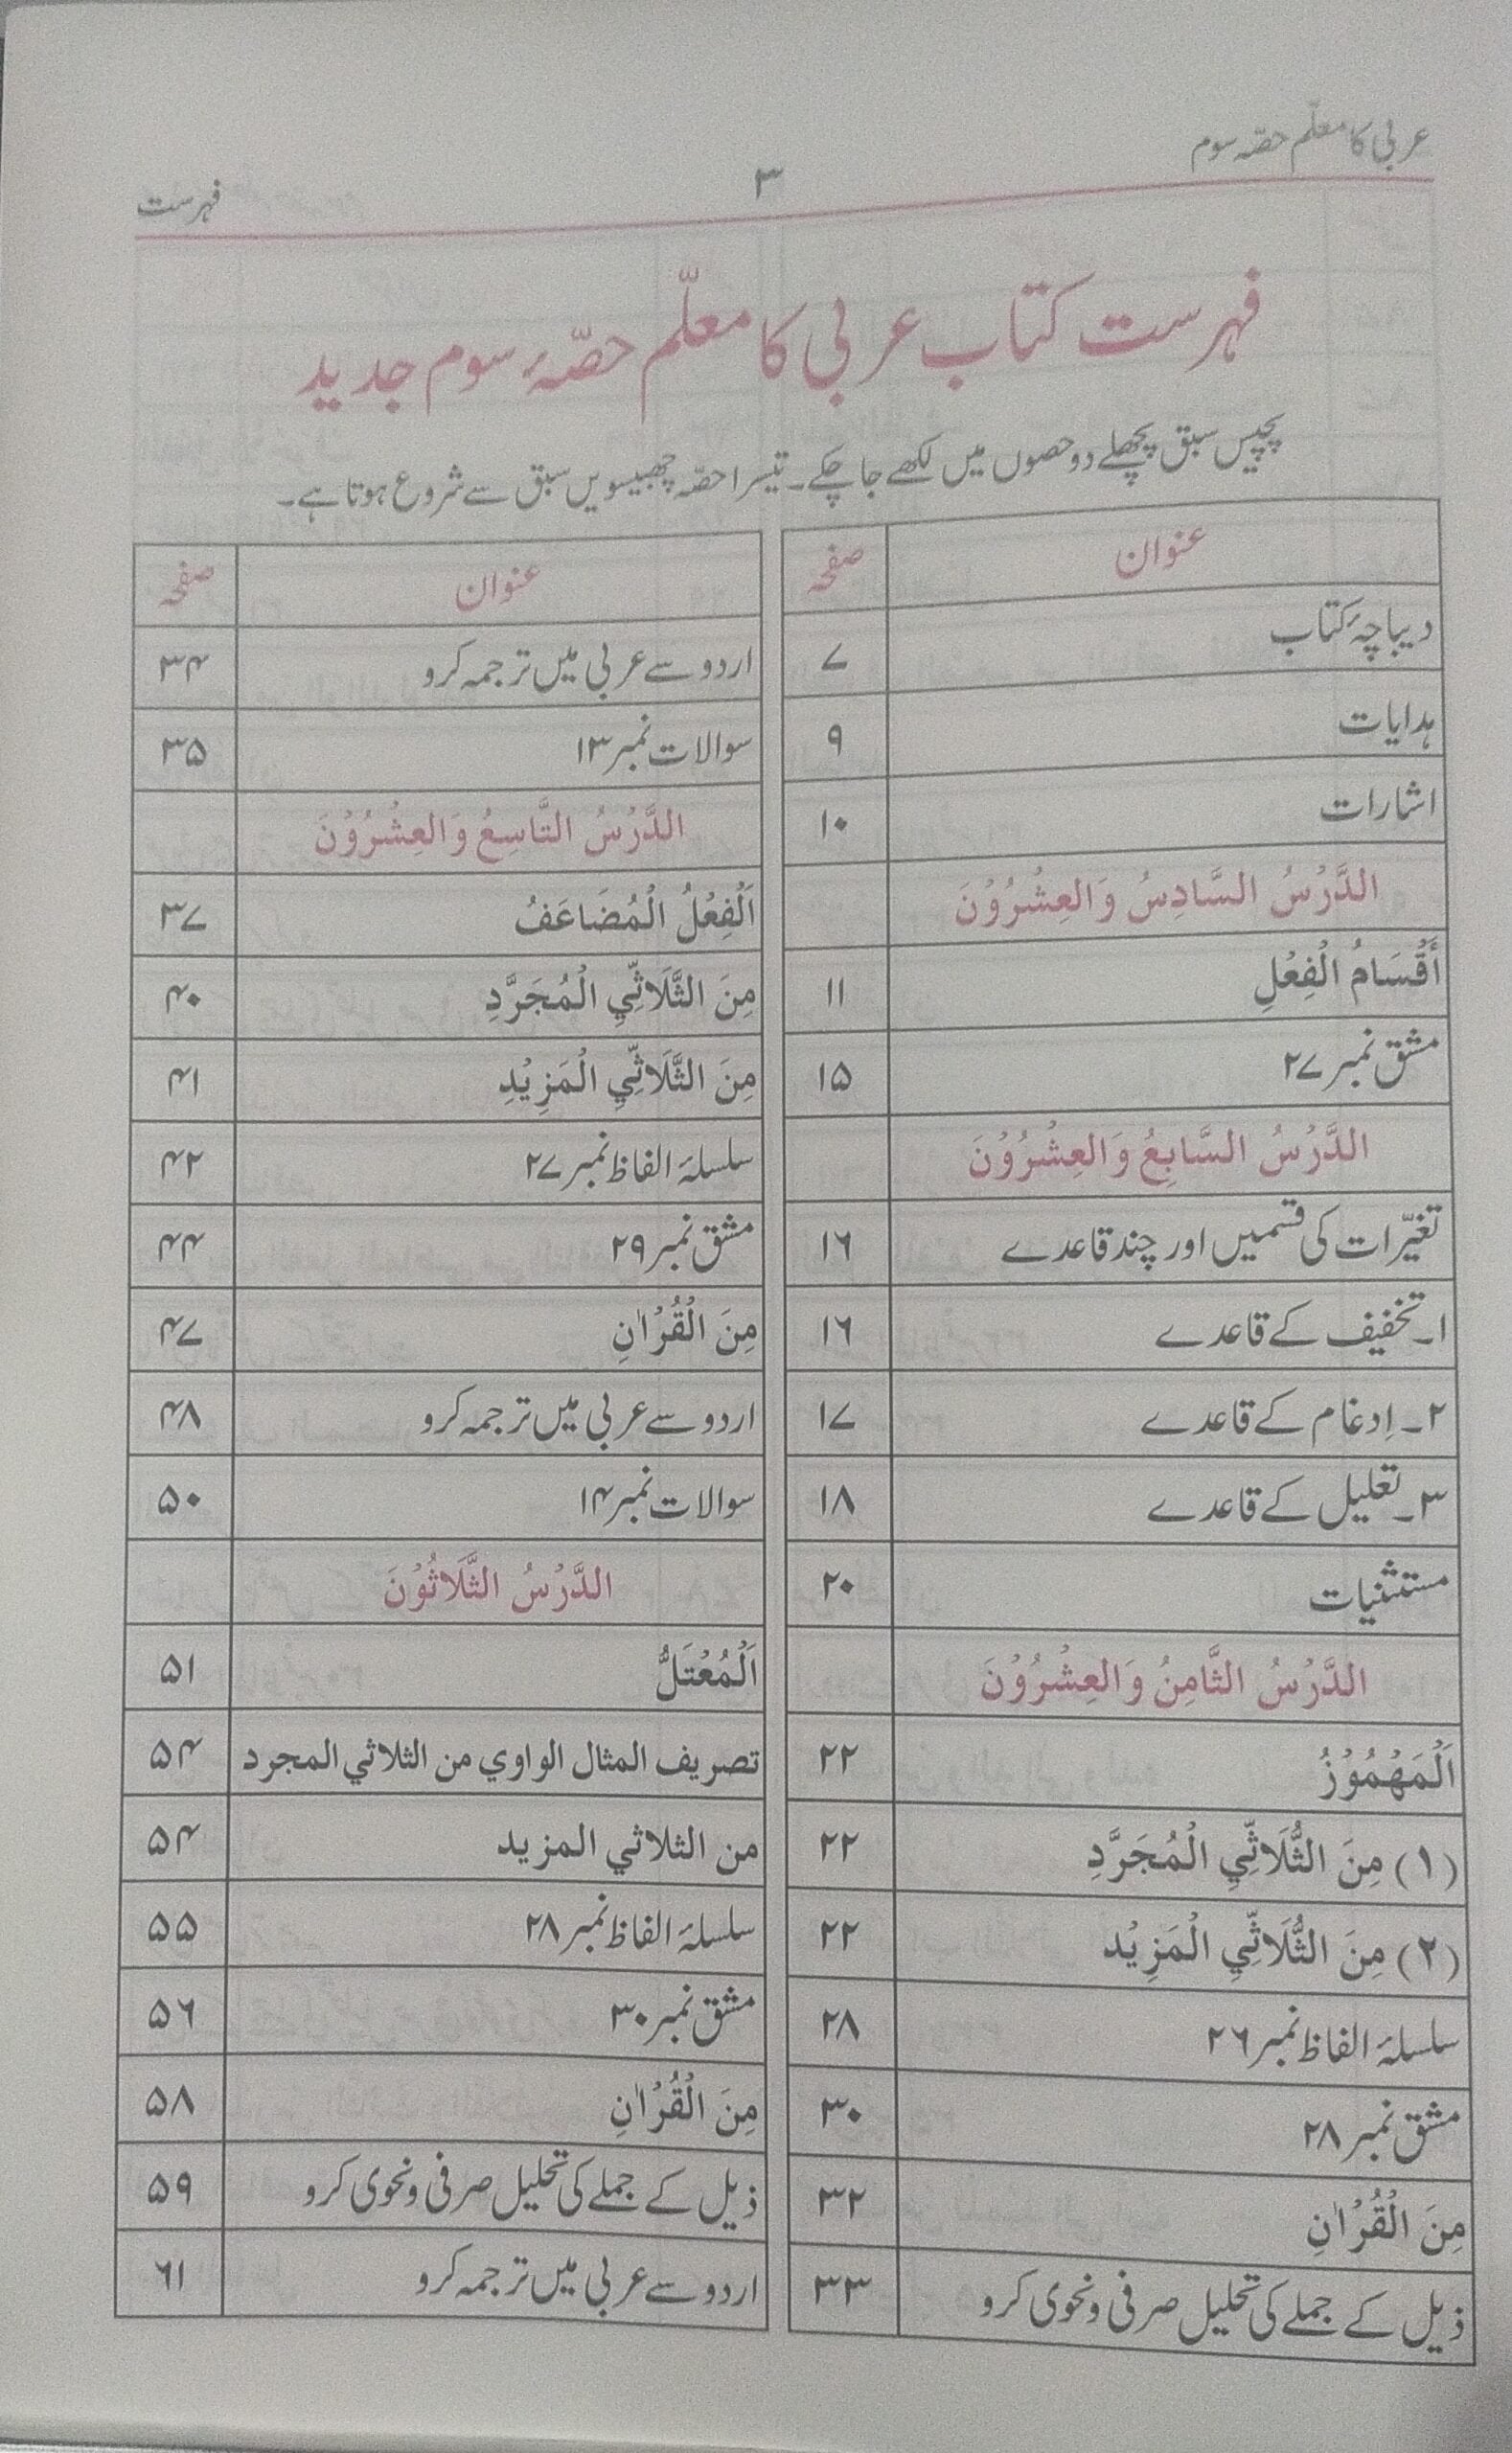 عربی کا معلّم حصّہ سوم
۳
فہرست
فہرست کتاب عربی کا معلّم حصّۂ سوم جدید
پچیس سبق پچھلے دو حصوں میں لکھے جا چکے۔ تیسرا حصّہ چھبیسویں سبق سے شروع ہوتا ہے۔
عنوان صفحہ
دیباچۂ کتاب ۷
ہدایات ۹
اشارات ۱۰
الدَّرْسُ السَّادِسُ وَالعِشْرُوْنَ
أَقْسَامُ الْفِعْلِ ۱۱
مشق نمبر ۲۷ ۱۵
الدَّرْسُ السَّابِعُ وَالعِشْرُوْنَ
تغیّرات کی قسمیں اور چند قاعدے ۱۶
۱۔ تخفیف کے قاعدے ۱۶
۲۔ اِدغام کے قاعدے ۱۷
۳۔ تعلیل کے قاعدے ۱۸
مستثنیات ۲۰
الدَّرْسُ الثَّامِنُ وَالعِشْرُوْنَ
اَلْمَهْمُوْزُ ۲۲
(۱) مِنَ الثُّلَاثِّيِ الْمُجَرَّدِ ۲۲
(۲) مِنَ الثُّلَاثِّيِ الْمَزِيْد ۲۲
سلسلۂ الفاظ نمبر ۲۶ ۲۸
مشق نمبر ۲۸ ۳۰
مِنَ الْقُرْاٰنِ ۳۲
ذیل کے جملے کی تحلیل صرفی و نحوی کرو ۳۳
عنوان صفحہ
اردو سے عربی میں ترجمہ کرو ۳۴
سوالات نمبر ۱۳ ۳۵
الدَّرْسُ التَّاسِعُ وَالعِشْرُوْنَ
اَلْفِعْلُ الْمُضَاعَفُ ۳۷
مِنَ الثَّلَاثِّيِ الْمُجَرَّدِ ۴۰
مِنَ الثَّلَاثِّيِ الْمَزِيْدِ ۴۱
سلسلۂ الفاظ نمبر ۲۷ ۴۲
مشق نمبر ۲۹ ۴۴
مِنَ الْقُرْاٰنِ ۴۷
اردو سے عربی میں ترجمہ کرو ۴۸
سوالات نمبر ۱۴ ۵۰
الدَّرْسُ الثَّلَاثُوْنَ
اَلْمُعْتَلُّ ۵۱
تصريف المثال الواوي من الثلاثي المجرد ۵۴
من الثلاثي المزيد ۵۴
سلسلۂ الفاظ نمبر ۲۸ ۵۵
مشق نمبر ۳۰ ۵۶
مِنَ الْقُرْاٰنِ ۵۸
ذیل کے جملے کی تحلیل صرفی و نحوی کرو ۵۹
اردو سے عربی میں ترجمہ کرو ۶۱